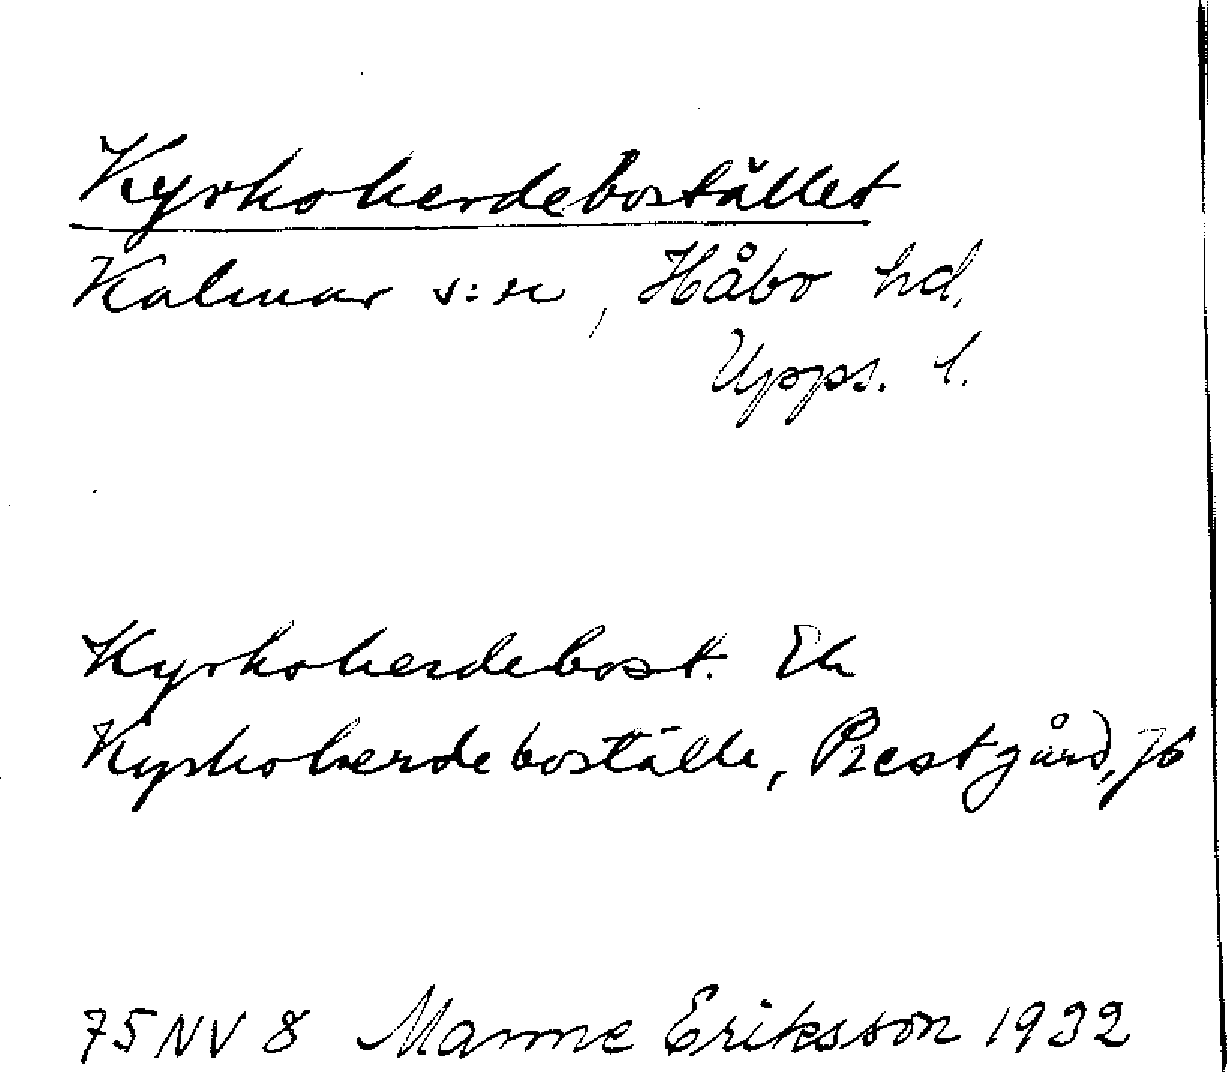 Kyrkoherdebostället
Kalmar s:n, Håbo hd.
Upps. l.
Kyrkoherdebost. Ek
Kyrkoherdeboställe, Prestgård, Jb
75 NV 8 Manne Eriksson 1932